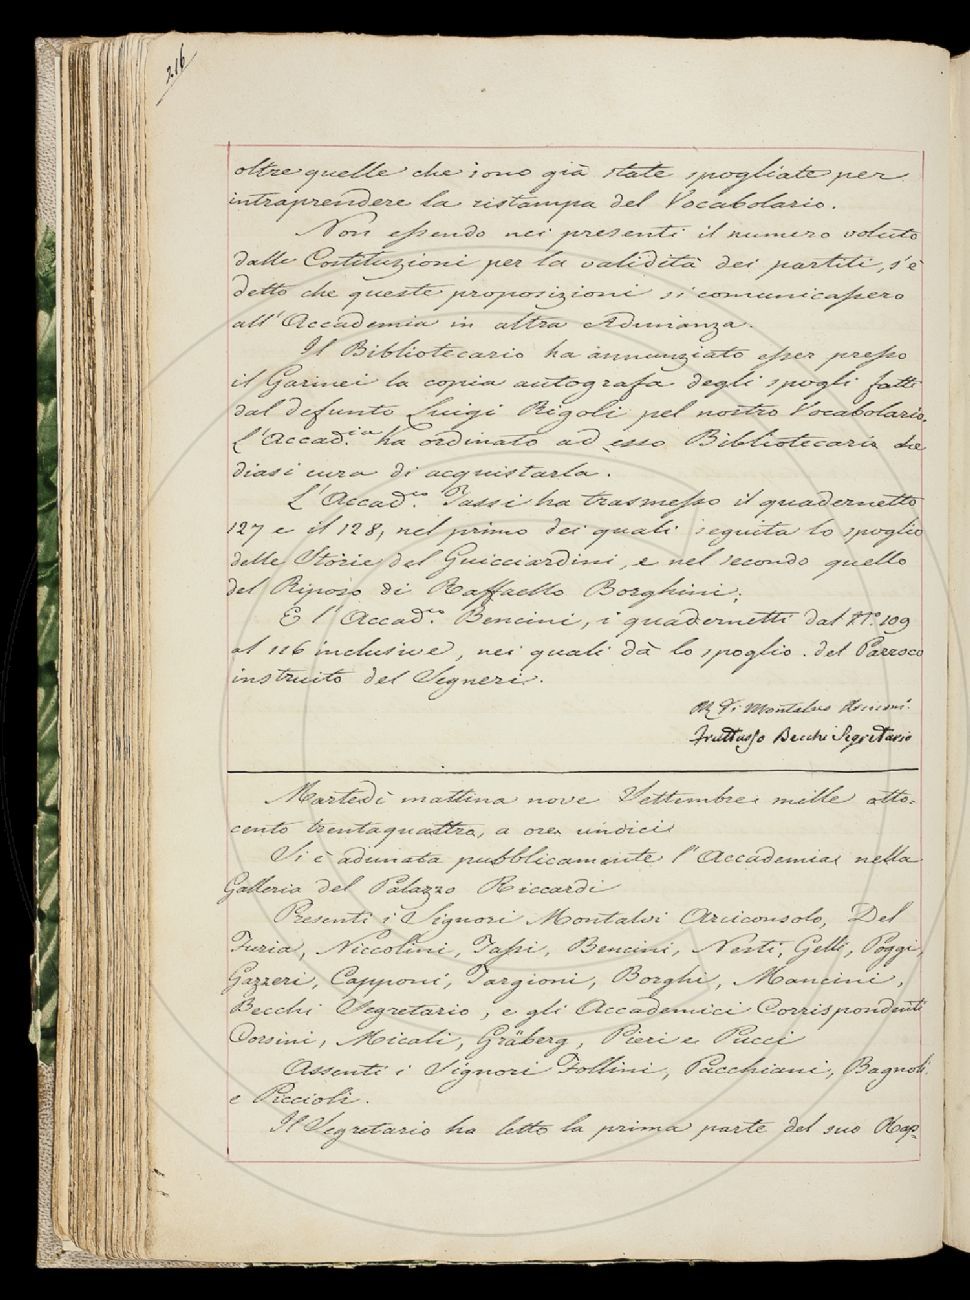 216
oltre quelle che sono già state spogliate per
intraprendere la ristampa del Vocabolario.
Non essendo nei presenti il numero voluto
dalle Costituzioni per la validità dei partiti, s'è
detto che queste proposizioni si comunicassero
all'Accademia in altra Adunanza.
Il Bibliotecario ha annunziato esser presso
il Garinei la copia autografa degli spogli fatti
dal defunto Luigi Rigoli pel nostro Vocabolario.
L'Accad.ia ha ordinato ad esso Bibliotecario che
diasi cura di acquistarla.
L'Accad.co Tassi ha trasmesso il quadernetto
127 e il 128, nel primo dei quali seguita lo spoglio
delle Storie del Guicciardini, e nel secondo quello
del Riposo di Raffaello Borghini;
E l'Accad.co Bencini, i quadernetti dal N.o 109
al 116 inclusive, nei quali dà lo spoglio del Parroco
instruito del Segneri.
di Montalvo Arcicon.
Fruttuoso Becchi Segretario
Martedì mattina nove Settembre mille otto-
cento trentaquattro, a ore undici
Si è adunata pubblicamente l'Accademia nella
Galleria del Palazzo Riccardi
Presenti i Signori Montalvi Arciconsolo, Del
Furia, Niccolini, Tassi, Bencini, Nesti, Gelli, Poggi,
Gazzeri, Capponi, Targioni, Borghi, Mancini,
Becchi Segretario, e gli Accademici Corrispondenti
Corsini, Micali, Gräberg, Pieri e Pucci
Assenti i Signori Follini, Pacchiani, Bagnoli
e Piccioli.
Il Segretario ha letto la prima parte del suo Rap-